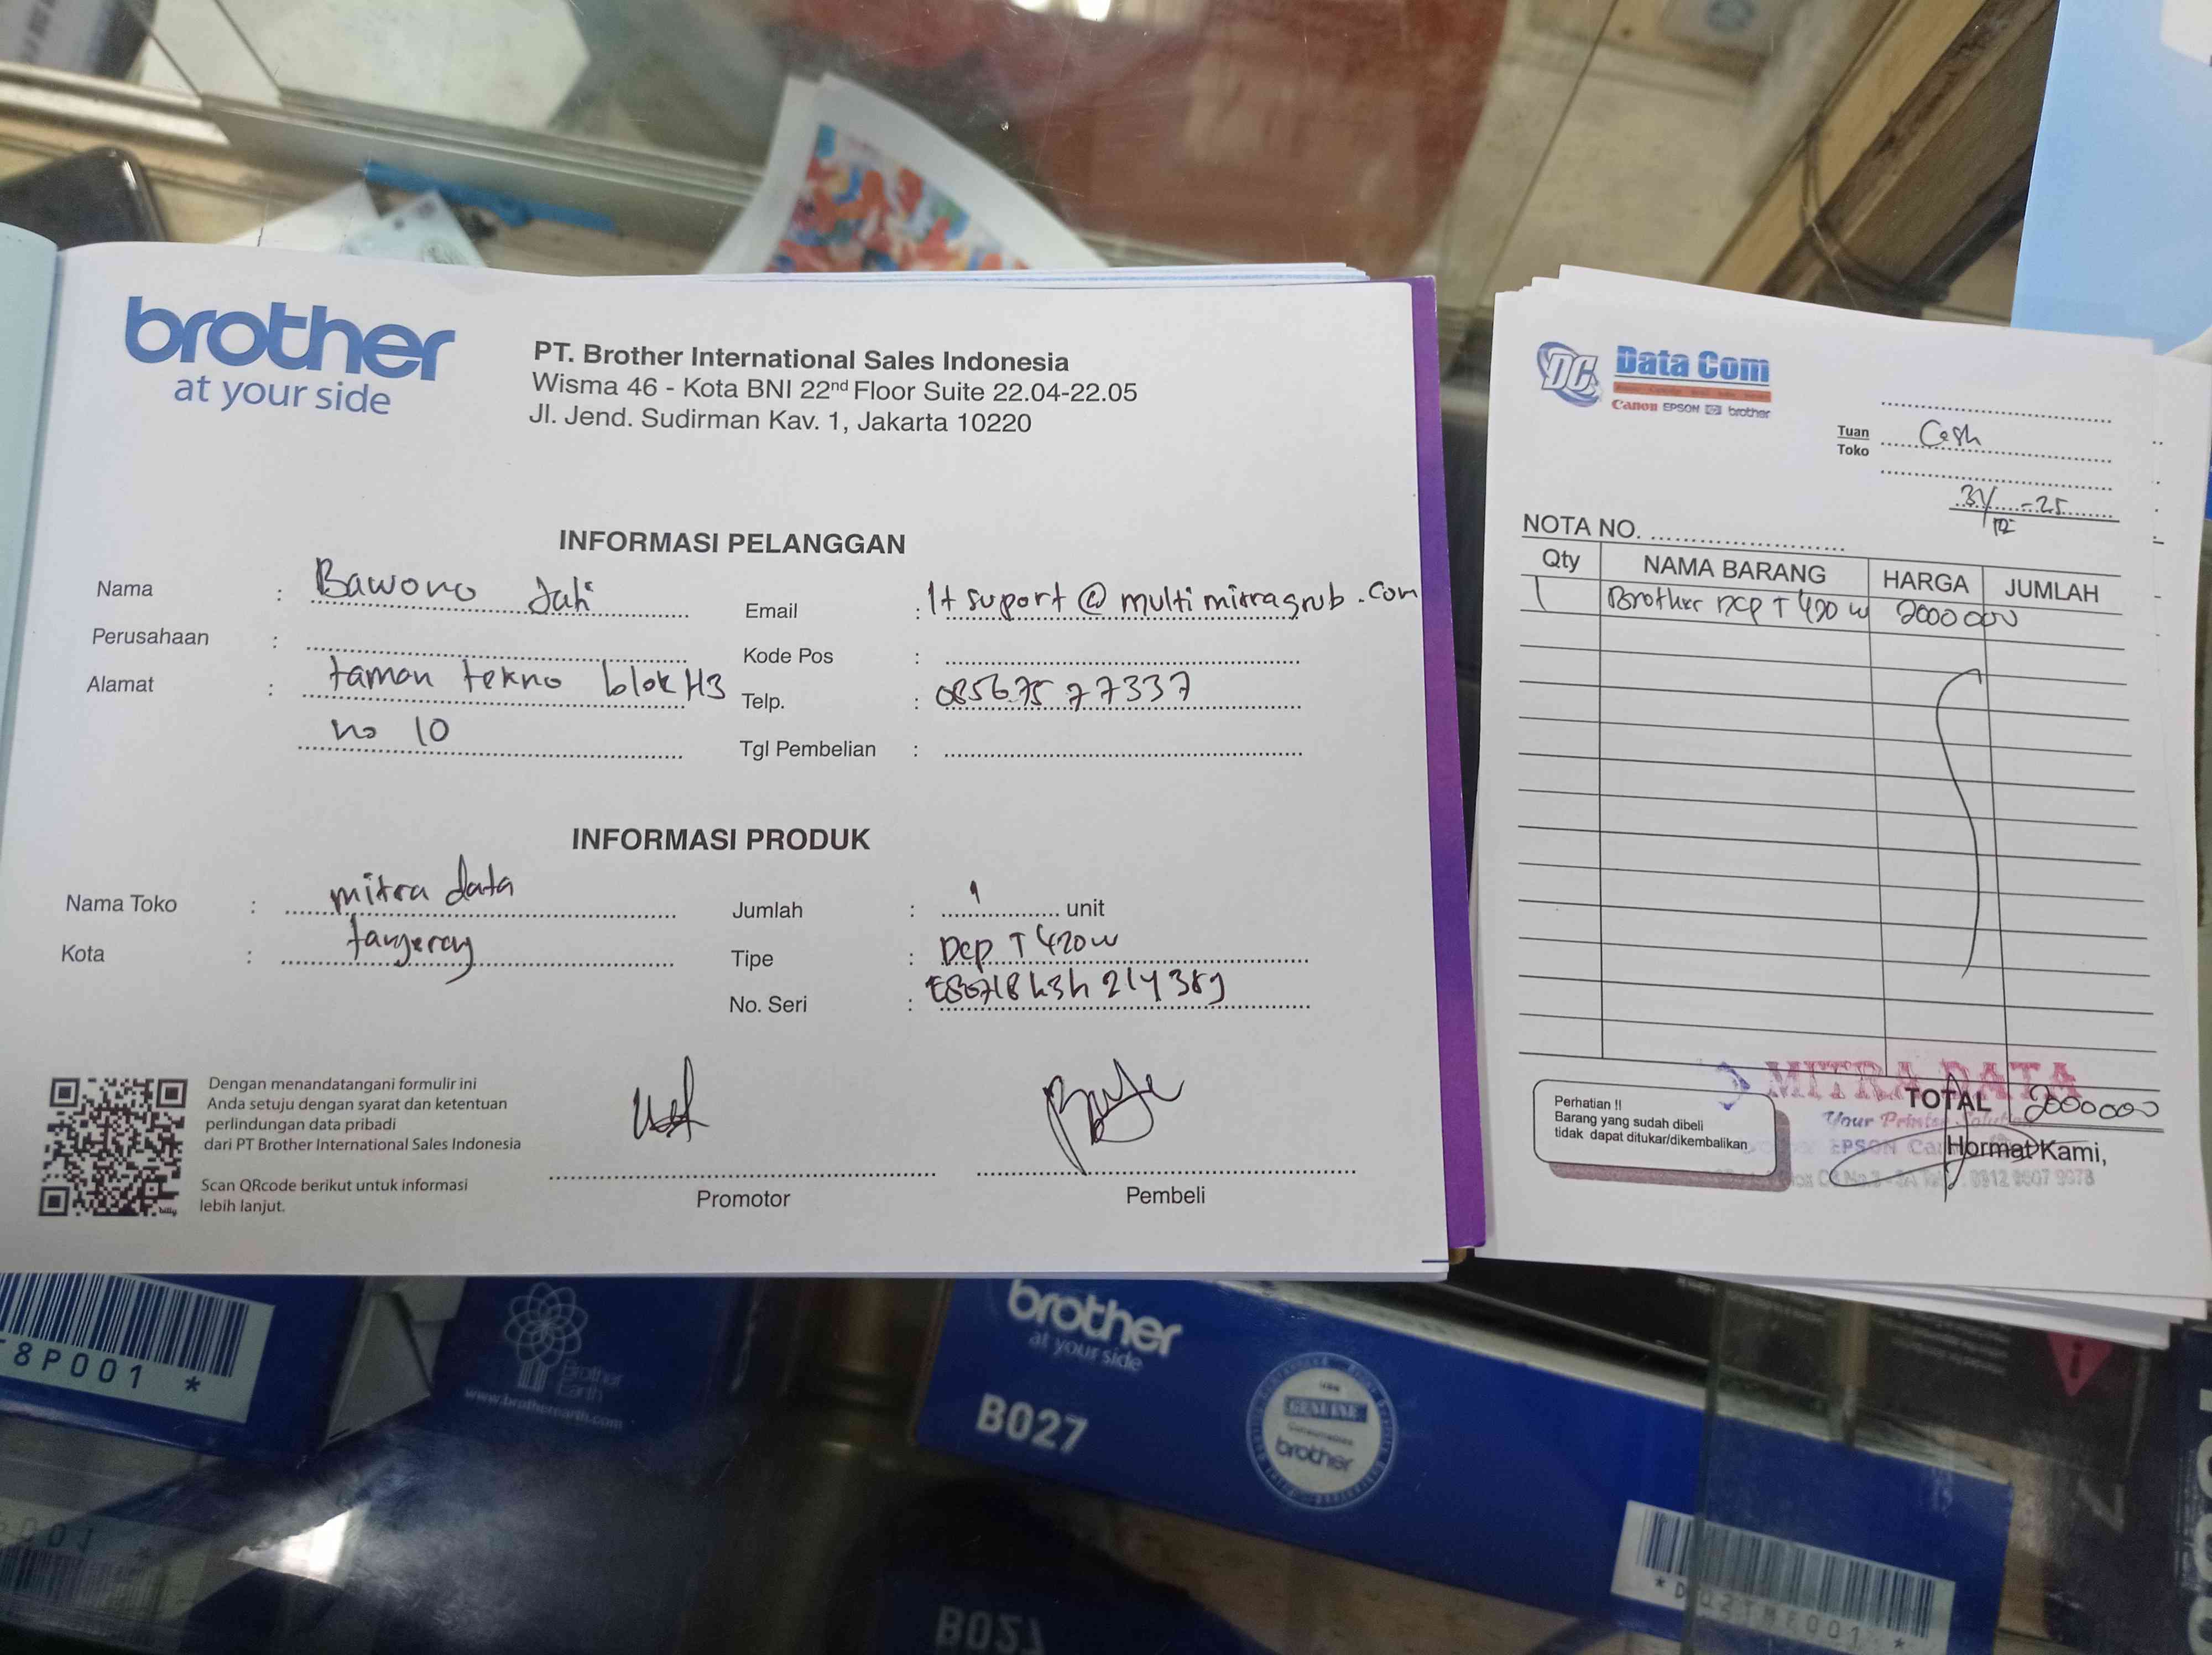 brother
at your side
PT. Brother International Sales Indonesia
Wisma 46 - Kota BNI 22nd Floor Suite 22.04-22.05
Jl. Jend. Sudirman Kav. 1, Jakarta 10220
INFORMASI PELANGGAN
Nama : Bawono Jati
Perusahaan :
Alamat : taman tekno blok H3
no 10
Email : It suport @ multi mitragrub . com
Kode Pos :
Telp. : 08567577337
Tgl Pembelian :
INFORMASI PRODUK
Nama Toko : mitra data
Kota : tangerang
Jumlah : 1 unit
Tipe : Dcp T 420w
No. Seri :
Dengan menandatangani formulir ini
Anda setuju dengan syarat dan ketentuan
perlindungan data pribadi
dari PT Brother International Sales Indonesia
Scan QRcode berikut untuk informasi
lebih lanjut.
Promotor
Pembeli
DC Data Com
Canon EPSON hp brother
Tuan
Toko
Cash
31/12 - 25
NOTA NO.
Qty NAMA BARANG HARGA JUMLAH
1 Brother DCP T 420 w 2000 000
MITRA DATA
TOTAL 2000000
Your Printer
EPSON
Hormat Kami,
Perhatian !!
Barang yang sudah dibeli
tidak dapat ditukar/dikembalikan
8P001 *
Brother
Earth
www.brotherearth.com
brother
at your side
B027
GENUINE
brother
001 *
B027